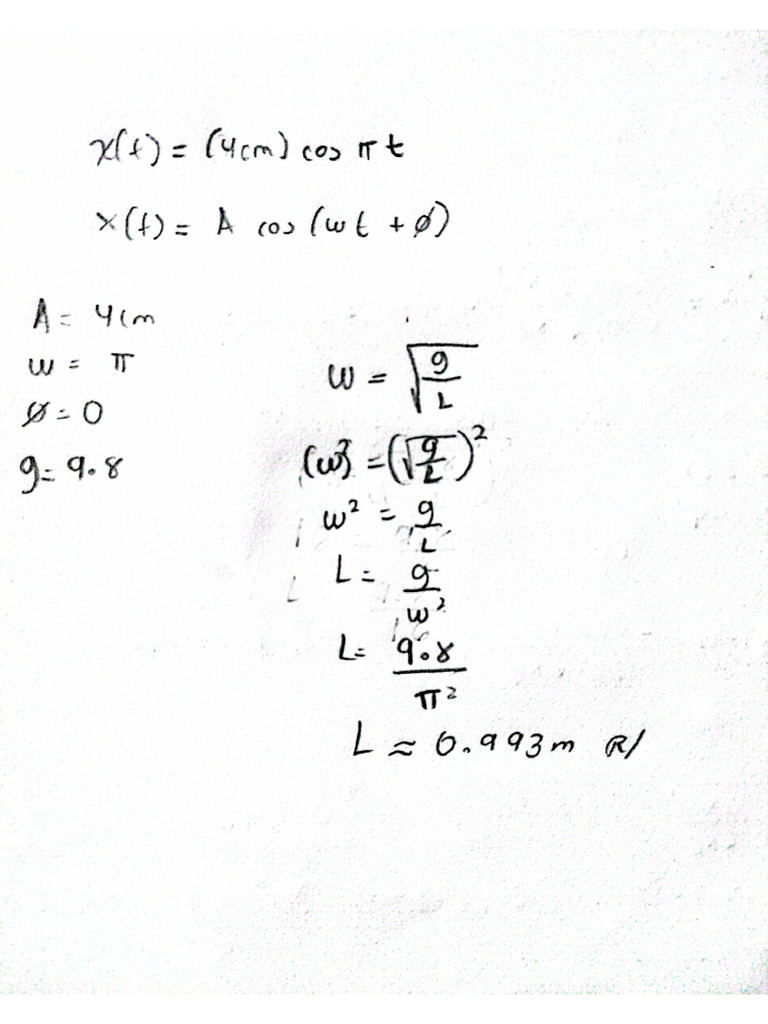 x(t) = (4cm) cos π t
x(t) = A cos (wt + ø)
A = 4cm
w = π
ø = 0
g = 9.8
w = √(g/L)
(w)² = (√(g/L))²
w² = g/L
L = g/w²
L = 9.8/π²
L ≈ 0.993m R/